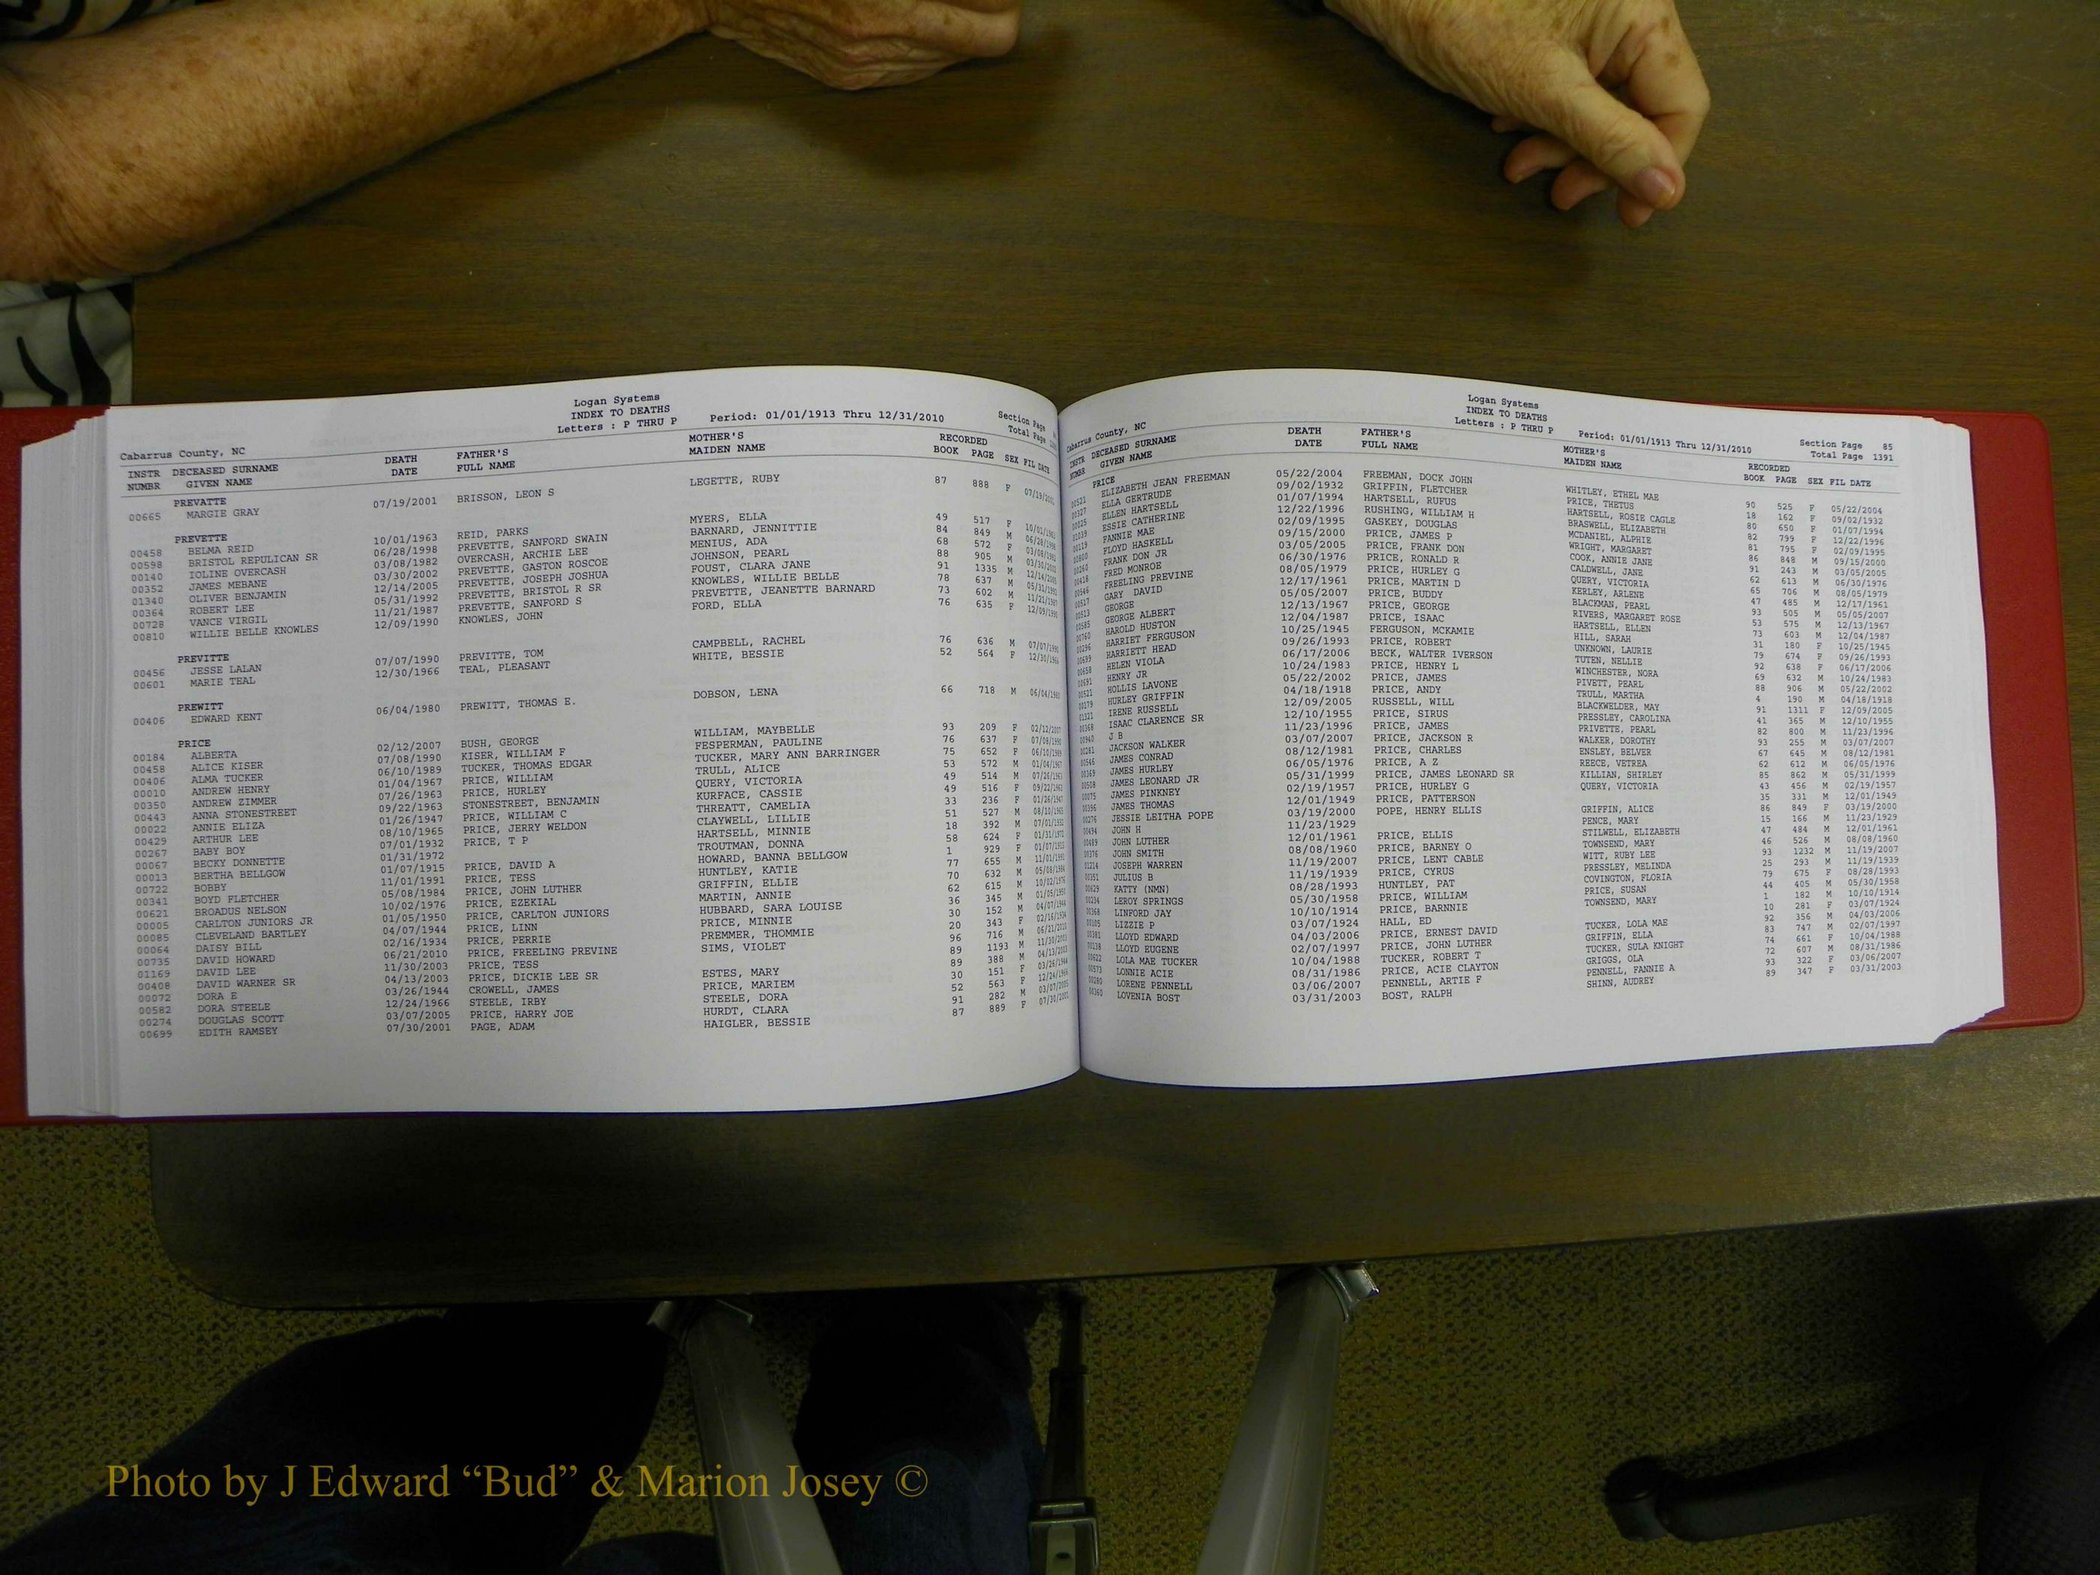 Logan Systems
INDEX TO DEATHS
Letters : P THRU P Period: 01/01/1913 Thru 12/31/2010
Section Page
Total Page
Cabarrus County, NC
INSTR NUMBR DECEASED SURNAME GIVEN NAME DEATH DATE FATHER'S FULL NAME MOTHER'S MAIDEN NAME RECORDED BOOK PAGE SEX FIL DATE
PREVATTE
00665 MARGIE GRAY 07/19/2001 BRISSON, LEON S LEGETTE, RUBY 87 888 F 07/19/2001
PREVETTE
00458 BELMA REID 10/01/1963 REID, PARKS MYERS, ELLA 49 517 F 10/01/1963
00598 BRISTOL REPULICAN SR 06/28/1998 PREVETTE, SANFORD SWAIN BARNARD, JENNITTIE 84 849 M 06/28/1998
00140 IOLINE OVERCASH 03/08/1982 OVERCASH, ARCHIE LEE MENIUS, ADA 68 572 F 03/08/1982
00352 JAMES MEBANE 03/30/2002 PREVETTE, GASTON ROSCOE JOHNSON, PEARL 88 905 M 03/30/2002
01340 OLIVER BENJAMIN 12/14/2005 PREVETTE, JOSEPH JOSHUA FOUST, CLARA JANE 91 1335 M 12/14/2005
00364 ROBERT LEE 05/31/1992 PREVETTE, BRISTOL R SR KNOWLES, WILLIE BELLE 78 637 M 05/31/1992
00728 VANCE VIRGIL 11/21/1987 PREVETTE, SANFORD S PREVETTE, JEANETTE BARNARD 73 602 M 11/21/1987
00810 WILLIE BELLE KNOWLES 12/09/1990 KNOWLES, JOHN FORD, ELLA 76 635 F 12/09/1990
PREVITTE
00456 JESSE LALAN 07/07/1990 PREVITTE, TOM CAMPBELL, RACHEL 76 636 M 07/07/1990
00601 MARIE TEAL 12/30/1966 TEAL, PLEASANT WHITE, BESSIE 52 564 F 12/30/1966
PREWITT
00406 EDWARD KENT 06/04/1980 PREWITT, THOMAS E. DOBSON, LENA 66 718 M 06/04/1980
PRICE
00184 ALBERTA 02/12/2007 BUSH, GEORGE WILLIAM, MAYBELLE 93 209 F 02/12/2007
00458 ALICE KISER 07/08/1990 KISER, WILLIAM F FESPERMAN, PAULINE 76 637 F 07/08/1990
00406 ALMA TUCKER 06/10/1989 TUCKER, THOMAS EDGAR TUCKER, MARY ANN BARRINGER 75 652 F 06/10/1989
00010 ANDREW HENRY 01/04/1967 PRICE, WILLIAM TRULL, ALICE 53 572 M 01/04/1967
00350 ANDREW ZIMMER 07/26/1963 PRICE, HURLEY QUERY, VICTORIA 49 514 M 07/26/1963
00443 ANNA STONESTREET 09/22/1963 STONESTREET, BENJAMIN KURFACE, CASSIE 49 516 F 09/22/1963
00022 ANNIE ELIZA 01/26/1947 PRICE, WILLIAM C THREATT, CAMELIA 33 236 F 01/26/1947
00429 ARTHUR LEE 08/10/1965 PRICE, JERRY WELDON CLAYWELL, LILLIE 51 527 M 08/10/1965
00267 BABY BOY 07/01/1932 PRICE, T P HARTSELL, MINNIE 18 392 M 07/01/1932
00067 BECKY DONNETTE 01/31/1972 TROUTMAN, DONNA 58 624 F 01/31/1972
00013 BERTHA BELLGOW 01/07/1915 PRICE, DAVID A HOWARD, BANNA BELLGOW 1 929 F 01/07/1915
00722 BOBBY 11/01/1991 PRICE, TESS HUNTLEY, KATIE 77 655 M 11/01/1991
00341 BOYD FLETCHER 05/08/1984 PRICE, JOHN LUTHER GRIFFIN, ELLIE 70 632 M 05/08/1984
00621 BROADUS NELSON 10/02/1976 PRICE, EZEKIAL MARTIN, ANNIE 62 615 M 10/02/1976
00005 CARLTON JUNIORS JR 01/05/1950 PRICE, CARLTON JUNIORS HUBBARD, SARA LOUISE 36 345 M 01/05/1950
00085 CLEVELAND BARTLEY 04/07/1944 PRICE, LINN PRICE, MINNIE 30 152 M 04/07/1944
00064 DAISY BILL 02/16/1934 PRICE, PERRIE PREMMER, THOMMIE 20 343 F 02/16/1934
00735 DAVID HOWARD 06/21/2010 PRICE, FREELING PREVINE SIMS, VIOLET 96 716 M 06/21/2010
01169 DAVID LEE 11/30/2003 PRICE, TESS 89 1193 M 11/30/2003
00408 DAVID WARNER SR 04/13/2003 PRICE, DICKIE LEE SR ESTES, MARY 89 388 M 04/13/2003
00072 DORA E 03/26/1944 CROWELL, JAMES PRICE, MARIEM 30 151 F 03/26/1944
00582 DORA STEELE 12/24/1966 STEELE, IRBY STEELE, DORA 52 563 F 12/24/1966
00274 DOUGLAS SCOTT 03/07/2005 PRICE, HARRY JOE HURDT, CLARA 91 282 M 03/07/2005
00699 EDITH RAMSEY 07/30/2001 PAGE, ADAM HAIGLER, BESSIE 87 889 F 07/30/2001
Logan Systems
INDEX TO DEATHS
Letters : P THRU P Period: 01/01/1913 Thru 12/31/2010
Section Page 85
Total Page 1391
Cabarrus County, NC
INSTR NUMBR DECEASED SURNAME GIVEN NAME DEATH DATE FATHER'S FULL NAME MOTHER'S MAIDEN NAME RECORDED BOOK PAGE SEX FIL DATE
PRICE
00521 ELIZABETH JEAN FREEMAN 05/22/2004 FREEMAN, DOCK JOHN WHITLEY, ETHEL MAE 90 525 F 05/22/2004
00327 ELLA GERTRUDE 09/02/1932 GRIFFIN, FLETCHER PRICE, THETUS 18 162 F 09/02/1932
00025 ELLEN HARTSELL 01/07/1994 HARTSELL, RUFUS HARTSELL, ROSIE CAGLE 80 650 F 01/07/1994
01039 ESSIE CATHERINE 12/22/1996 RUSHING, WILLIAM H BRASWELL, ELIZABETH 82 799 F 12/22/1996
00119 FANNIE MAE 02/09/1995 GASKEY, DOUGLAS MCDANIEL, ALPHIE 81 795 F 02/09/1995
00800 FLOYD HASKELL 09/15/2000 PRICE, JAMES P WRIGHT, MARGARET 86 848 M 09/15/2000
00260 FRANK DON JR 03/05/2005 PRICE, FRANK DON COOK, ANNIE JANE 91 243 M 03/05/2005
00418 FRED MONROE 06/30/1976 PRICE, RONALD R CALDWELL, JANE 62 613 M 06/30/1976
00546 FREELING PREVINE 08/05/1979 PRICE, HURLEY G QUERY, VICTORIA 65 706 M 08/05/1979
00517 GARY DAVID 12/17/1961 PRICE, MARTIN D KERLEY, ARLENE 47 485 M 12/17/1961
00513 GEORGE 05/05/2007 PRICE, BUDDY BLACKMAN, PEARL 93 505 M 05/05/2007
00585 GEORGE ALBERT 12/13/1967 PRICE, GEORGE RIVERS, MARGARET ROSE 53 575 M 12/13/1967
00760 HAROLD HUSTON 12/04/1987 PRICE, ISAAC HARTSELL, ELLEN 73 603 M 12/04/1987
00296 HARRIET FERGUSON 10/25/1945 FERGUSON, MCKAMIE HILL, SARAH 31 180 F 10/25/1945
00699 HARRIETT HEAD 09/26/1993 PRICE, ROBERT UNKNOWN, LAURIE 79 674 F 09/26/1993
00658 HELEN VIOLA 06/17/2006 BECK, WALTER IVERSON TUTEN, NELLIE 92 638 F 06/17/2006
00691 HENRY JR 10/24/1983 PRICE, HENRY L WINCHESTER, NORA 69 632 M 10/24/1983
00521 HOLLIS LAVONE 05/22/2002 PRICE, JAMES PIVETT, PEARL 88 906 M 05/22/2002
00179 HURLEY GRIFFIN 04/18/1918 PRICE, ANDY TRULL, MARTHA 4 190 M 04/18/1918
01321 IRENE RUSSELL 12/09/2005 RUSSELL, WILL BLACKWELDER, MAY 91 1311 F 12/09/2005
00368 ISAAC CLARENCE SR 12/10/1955 PRICE, SIRUS PRESSLEY, CAROLINA 41 365 M 12/10/1955
00940 J B 11/23/1996 PRICE, JAMES PRIVETTE, PEARL 82 800 M 11/23/1996
00281 JACKSON WALKER 03/07/2007 PRICE, JACKSON R WALKER, DOROTHY 93 255 M 03/07/2007
00546 JAMES CONRAD 08/12/1981 PRICE, CHARLES ENSLEY, BELVER 67 645 M 08/12/1981
00369 JAMES HURLEY 06/05/1976 PRICE, A Z REECE, VETREA 62 612 M 06/05/1976
00508 JAMES LEONARD JR 05/31/1999 PRICE, JAMES LEONARD SR KILLIAN, SHIRLEY 85 862 M 05/31/1999
00075 JAMES PINKNEY 02/19/1957 PRICE, HURLEY G QUERY, VICTORIA 43 456 M 02/19/1957
00396 JAMES THOMAS 12/01/1949 PRICE, PATTERSON 35 331 M 12/01/1949
00276 JESSIE LEITHA POPE 03/19/2000 POPE, HENRY ELLIS GRIFFIN, ALICE 86 849 F 03/19/2000
00494 JOHN H 11/23/1929 PENCE, MARY 15 166 M 11/23/1929
00489 JOHN LUTHER 12/01/1961 PRICE, ELLIS STILWELL, ELIZABETH 47 484 M 12/01/1961
00376 JOHN SMITH 08/08/1960 PRICE, BARNEY O TOWNSEND, MARY 46 526 M 08/08/1960
01214 JOSEPH WARREN 11/19/2007 PRICE, LENT CABLE WITT, RUBY LEE 93 1232 M 11/19/2007
00351 JULIUS B 11/19/1939 PRICE, CYRUS PRESSLEY, MELINDA 25 293 M 11/19/1939
00629 KATTY (NMN) 08/28/1993 HUNTLEY, PAT COVINGTON, FLORIA 79 675 F 08/28/1993
00234 LEROY SPRINGS 05/30/1958 PRICE, WILLIAM PRICE, SUSAN 44 405 M 05/30/1958
00368 LINFORD JAY 10/10/1914 PRICE, BARNNIE TOWNSEND, MARY 1 182 M 10/10/1914
00105 LIZZIE P 03/07/1924 HALL, ED 10 281 F 03/07/1924
00381 LLOYD EDWARD 04/03/2006 PRICE, ERNEST DAVID TUCKER, LOLA MAE 92 356 M 04/03/2006
00138 LLOYD EUGENE 02/07/1997 PRICE, JOHN LUTHER GRIFFIN, ELLA 83 747 M 02/07/1997
00622 LOLA MAE TUCKER 10/04/1988 TUCKER, ROBERT T TUCKER, SULA KNIGHT 74 661 F 10/04/1988
00573 LONNIE ACIE 08/31/1986 PRICE, ACIE CLAYTON GRIGGS, OLA 72 607 M 08/31/1986
00280 LORENE PENNELL 03/06/2007 PENNELL, ARTIE F PENNELL, FANNIE A 93 322 F 03/06/2007
00360 LOVENIA BOST 03/31/2003 BOST, RALPH SHINN, AUDREY 89 347 F 03/31/2003
Photo by J Edward “Bud” & Marion Josey ©